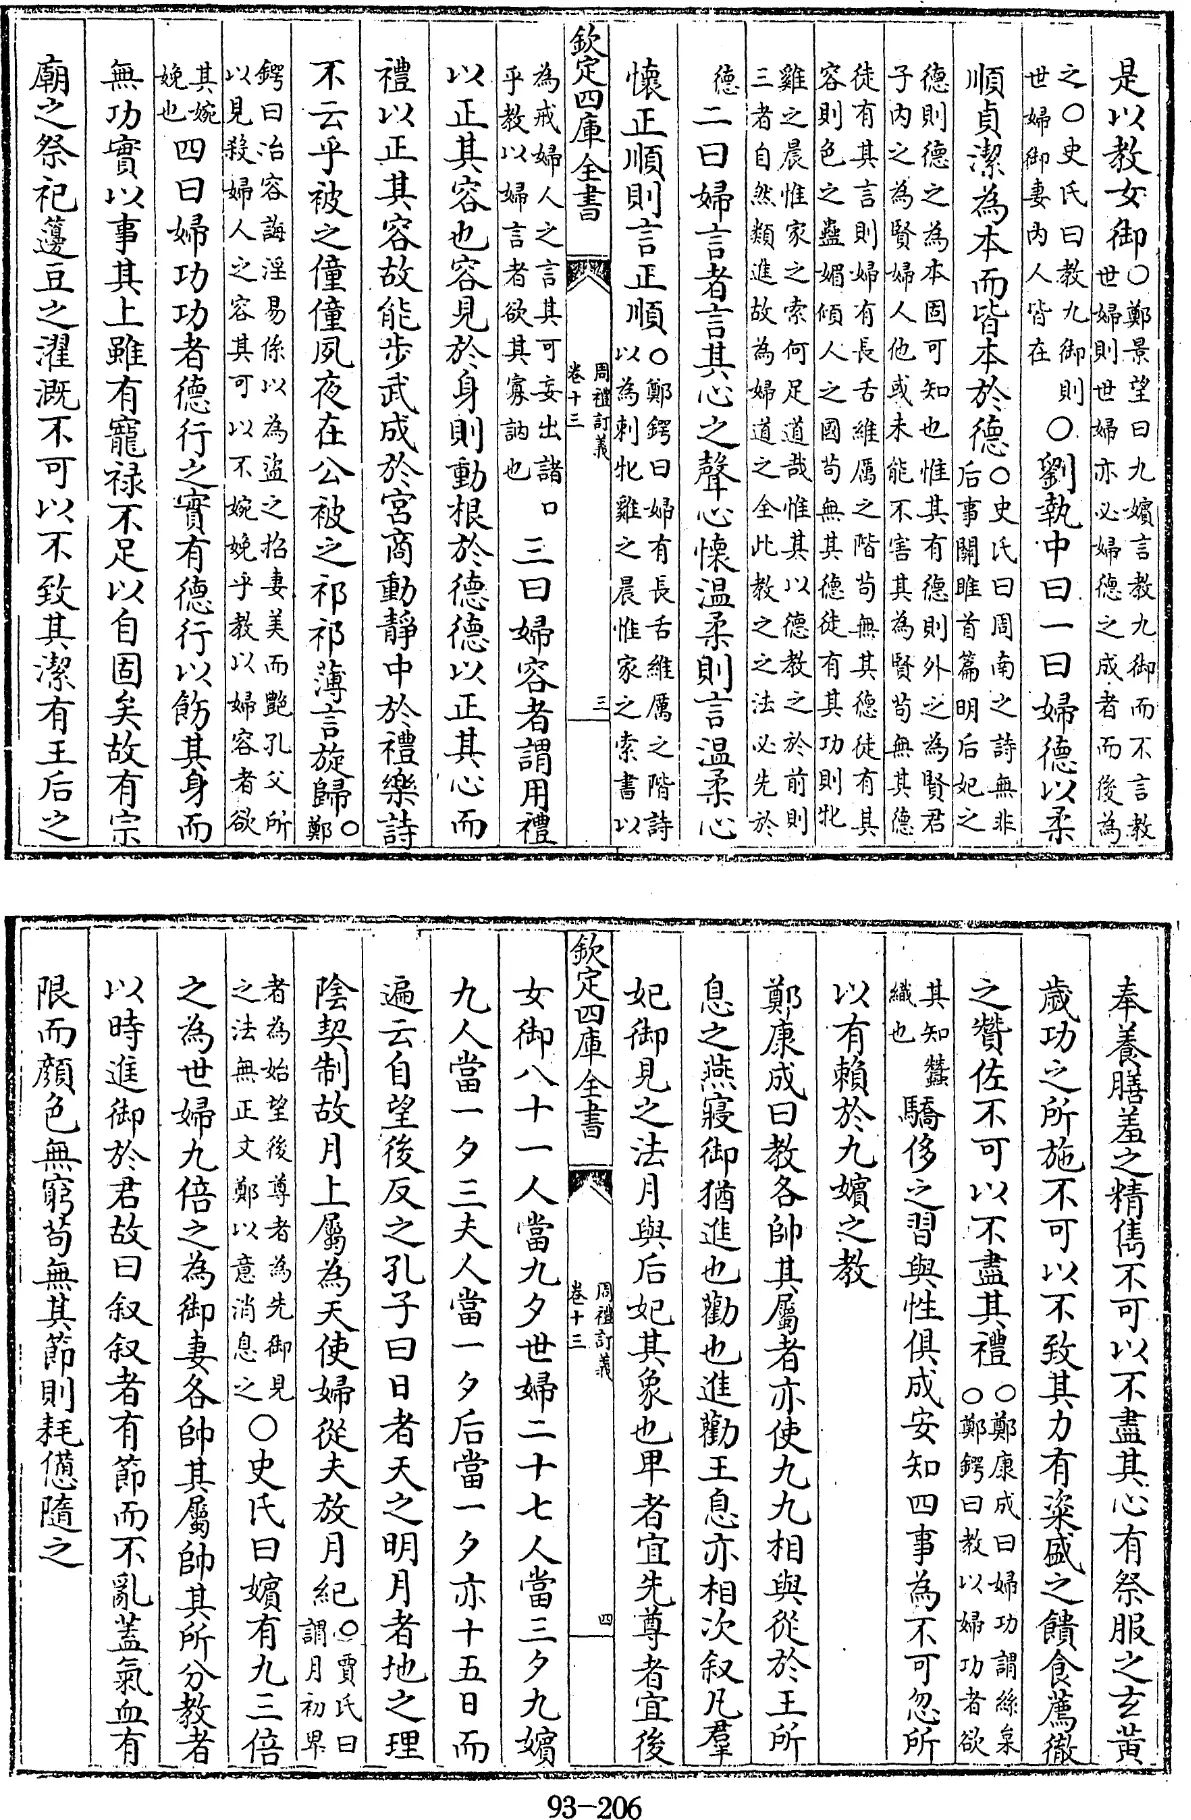 是以教女御○鄭景望曰九嬪言教九御而不言教世婦則世婦亦必婦德之成者而後為
之○史氏曰教九御則世婦御妻内人皆在○劉執中曰一曰婦德以柔
順貞潔為本而皆本於德○史氏曰周南之詩無非后事關雎首篇明后妃之
德則德之為本固可知也惟其有德則外之為賢君子内之為賢婦人他或未能不害其為賢茍無其德
徒有其言則婦有長舌維厲之階茍無其德徒有其容則色之蠱媚傾人之國茍無其德徒有其功則牝
雞之晨惟家之索何足道哉惟其以德教之於前則三者自然類進故為婦道之全此教之之法必先於
德二曰婦言者言其心之聲心懷温柔則言温柔心
懷正順則言正順○鄭鍔曰婦有長舌維厲之階詩以為刺牝雞之晨惟家之索書以
欽定四庫全書
周禮訂義
卷十三
三
為戒婦人之言其可妄出諸口乎教以婦言者欲其寡訥也三曰婦容者謂用禮
以正其容也容見於身則動根於德德以正其心而
禮以正其容故能步武成於宫商動靜中於禮樂詩
不云乎被之僮僮夙夜在公被之祁祁薄言旋歸○鄭
鍔曰冶容誨淫易係以為盜之招妻美而艷孔父所以見殺婦人之容其可以不婉娩乎教以婦容者欲
其婉娩也四曰婦功功者德行之實有德行以飭其身而
無功實以事其上雖有寵禄不足以自固矣故有宗
廟之祭祀籩豆之濯溉不可以不致其潔有王后之
奉養膳羞之精雋不可以不盡其心有祭服之玄黄
歲功之所施不可以不致其力有粢盛之饋食薦徹
之贊佐不可以不盡其禮○鄭康成曰婦功謂絲枲○鄭鍔曰教以婦功者欲
其知蠶織也驕侈之習與性俱成安知四事為不可忽所
以有賴於九嬪之教
鄭康成曰教各帥其屬者亦使九九相與從於王所
息之燕寢御猶進也勸也進勸王息亦相次叙凡羣
妃御見之法月與后妃其象也卑者宜先尊者宜後
欽定四庫全書
周禮訂義
卷十三
四
女御八十一人當九夕世婦二十七人當三夕九嬪
九人當一夕三夫人當一夕后當一夕亦十五日而
遍云自望後反之孔子曰日者天之明月者地之理
陰契制故月上屬為天使婦從夫放月紀○賈氏曰謂月初卑
者為始望後尊者為先御見之法無正文鄭以意消息之○史氏曰嬪有九三倍
之為世婦九倍之為御妻各帥其屬帥其所分教者
以時進御於君故曰叙叙者有節而不亂蓋氣血有
限而顔色無窮茍無其節則耗憊隨之
93-206